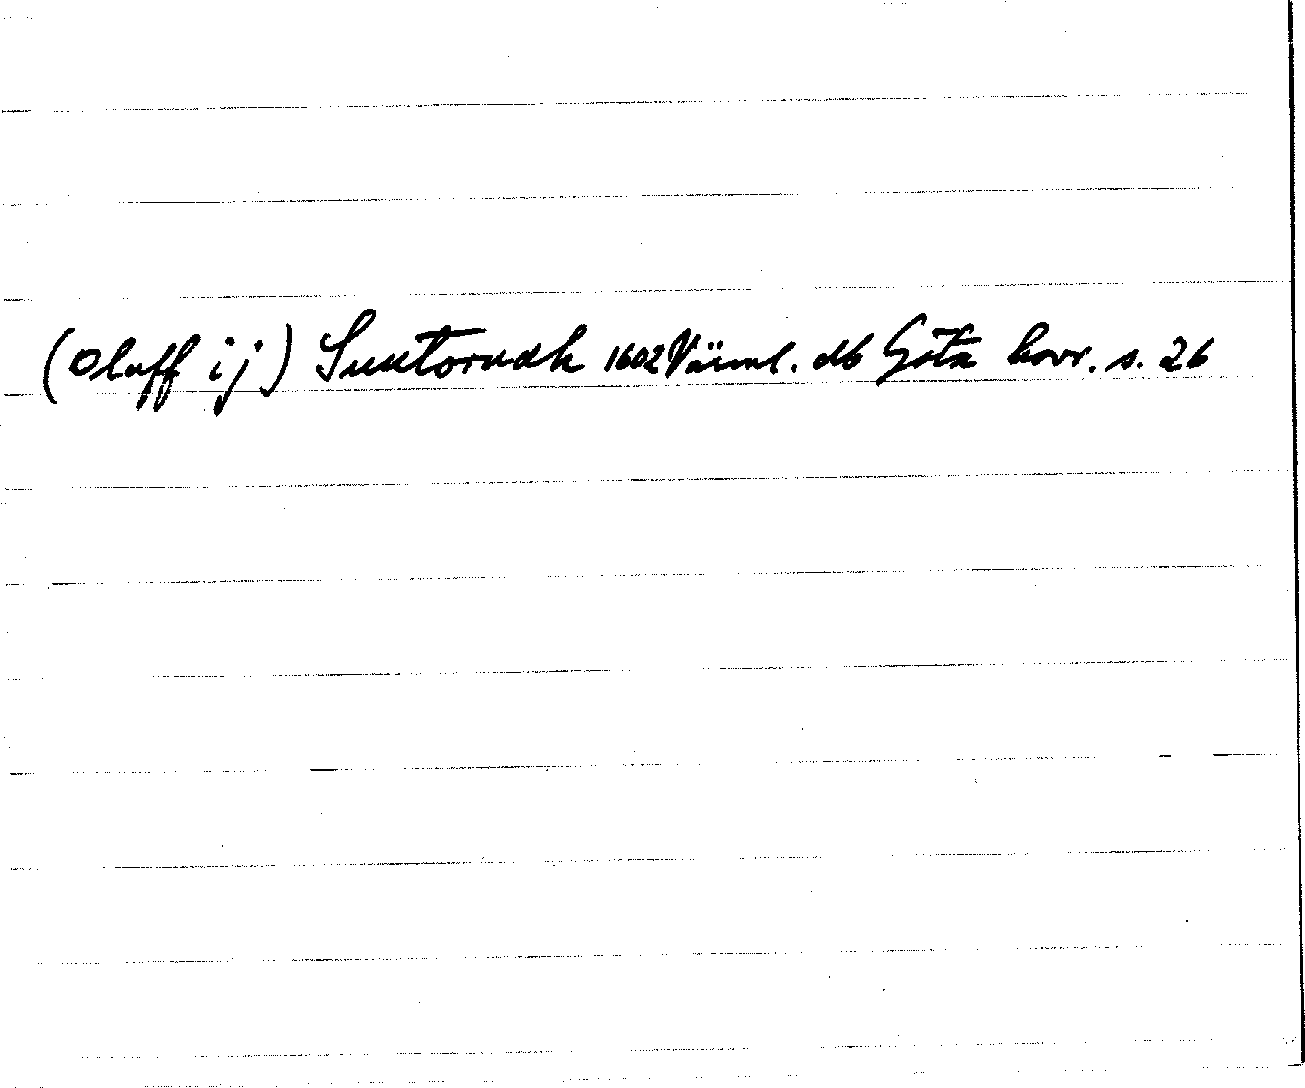 (Oluff ij) Suntorvdh 1602 Värml. db Göta hovr. s. 26